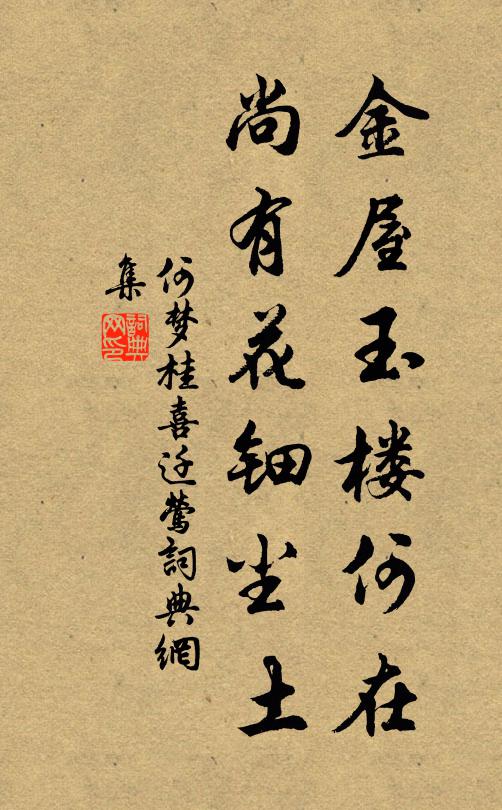 金屋玉楼何在
尚有花钿尘土
何梦桂喜迁莺詞典網
集
詞典
网印